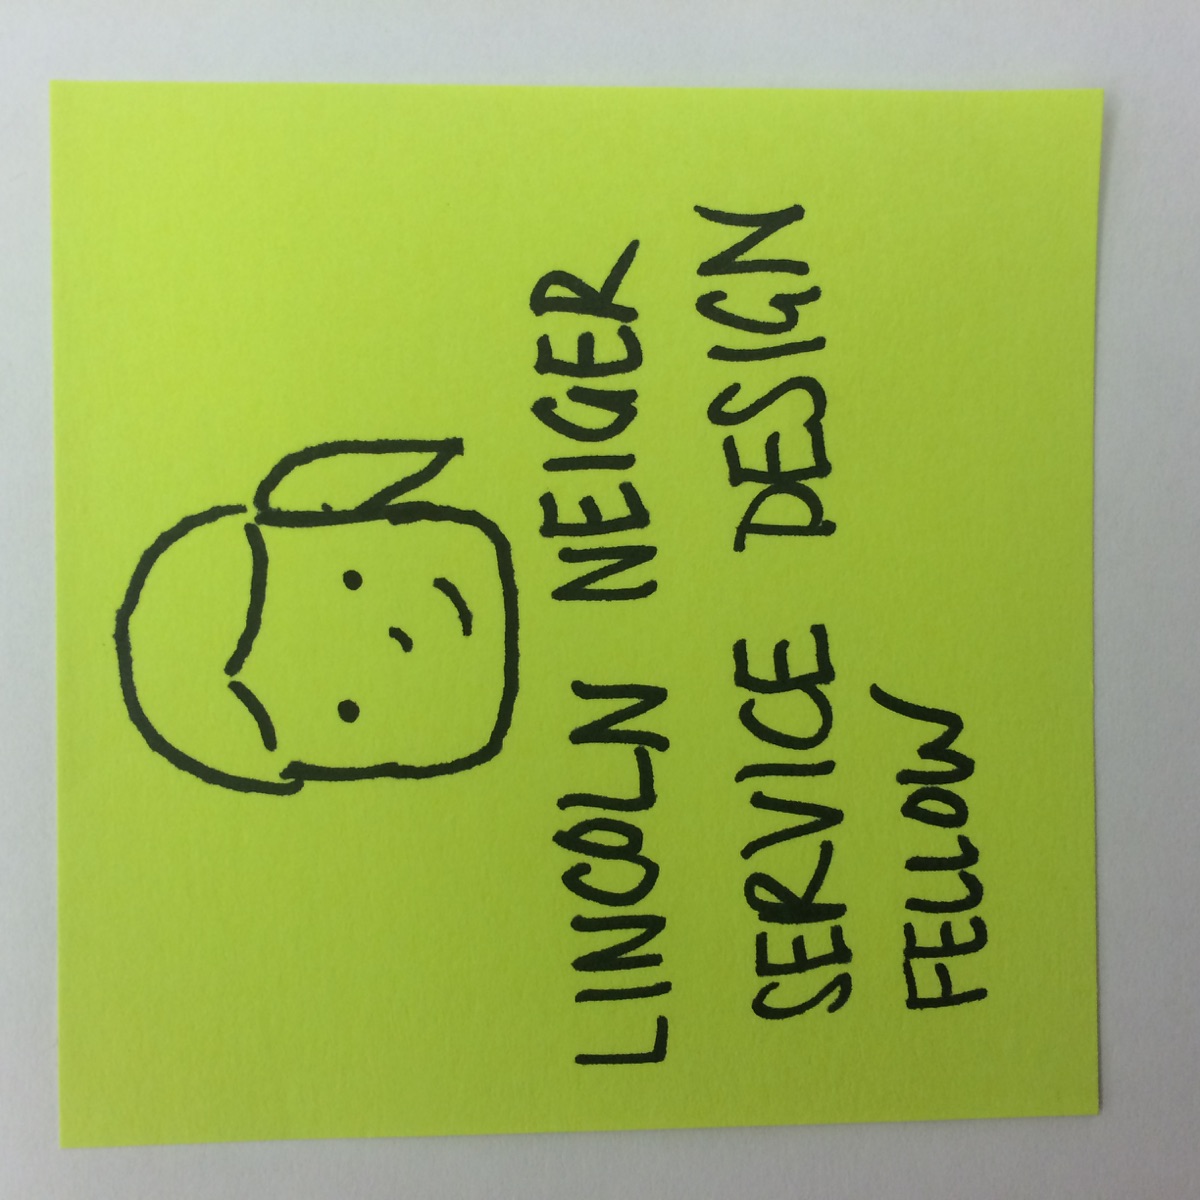 LINCOLN NEIGER
SERVICE DESIGN
FELLOW